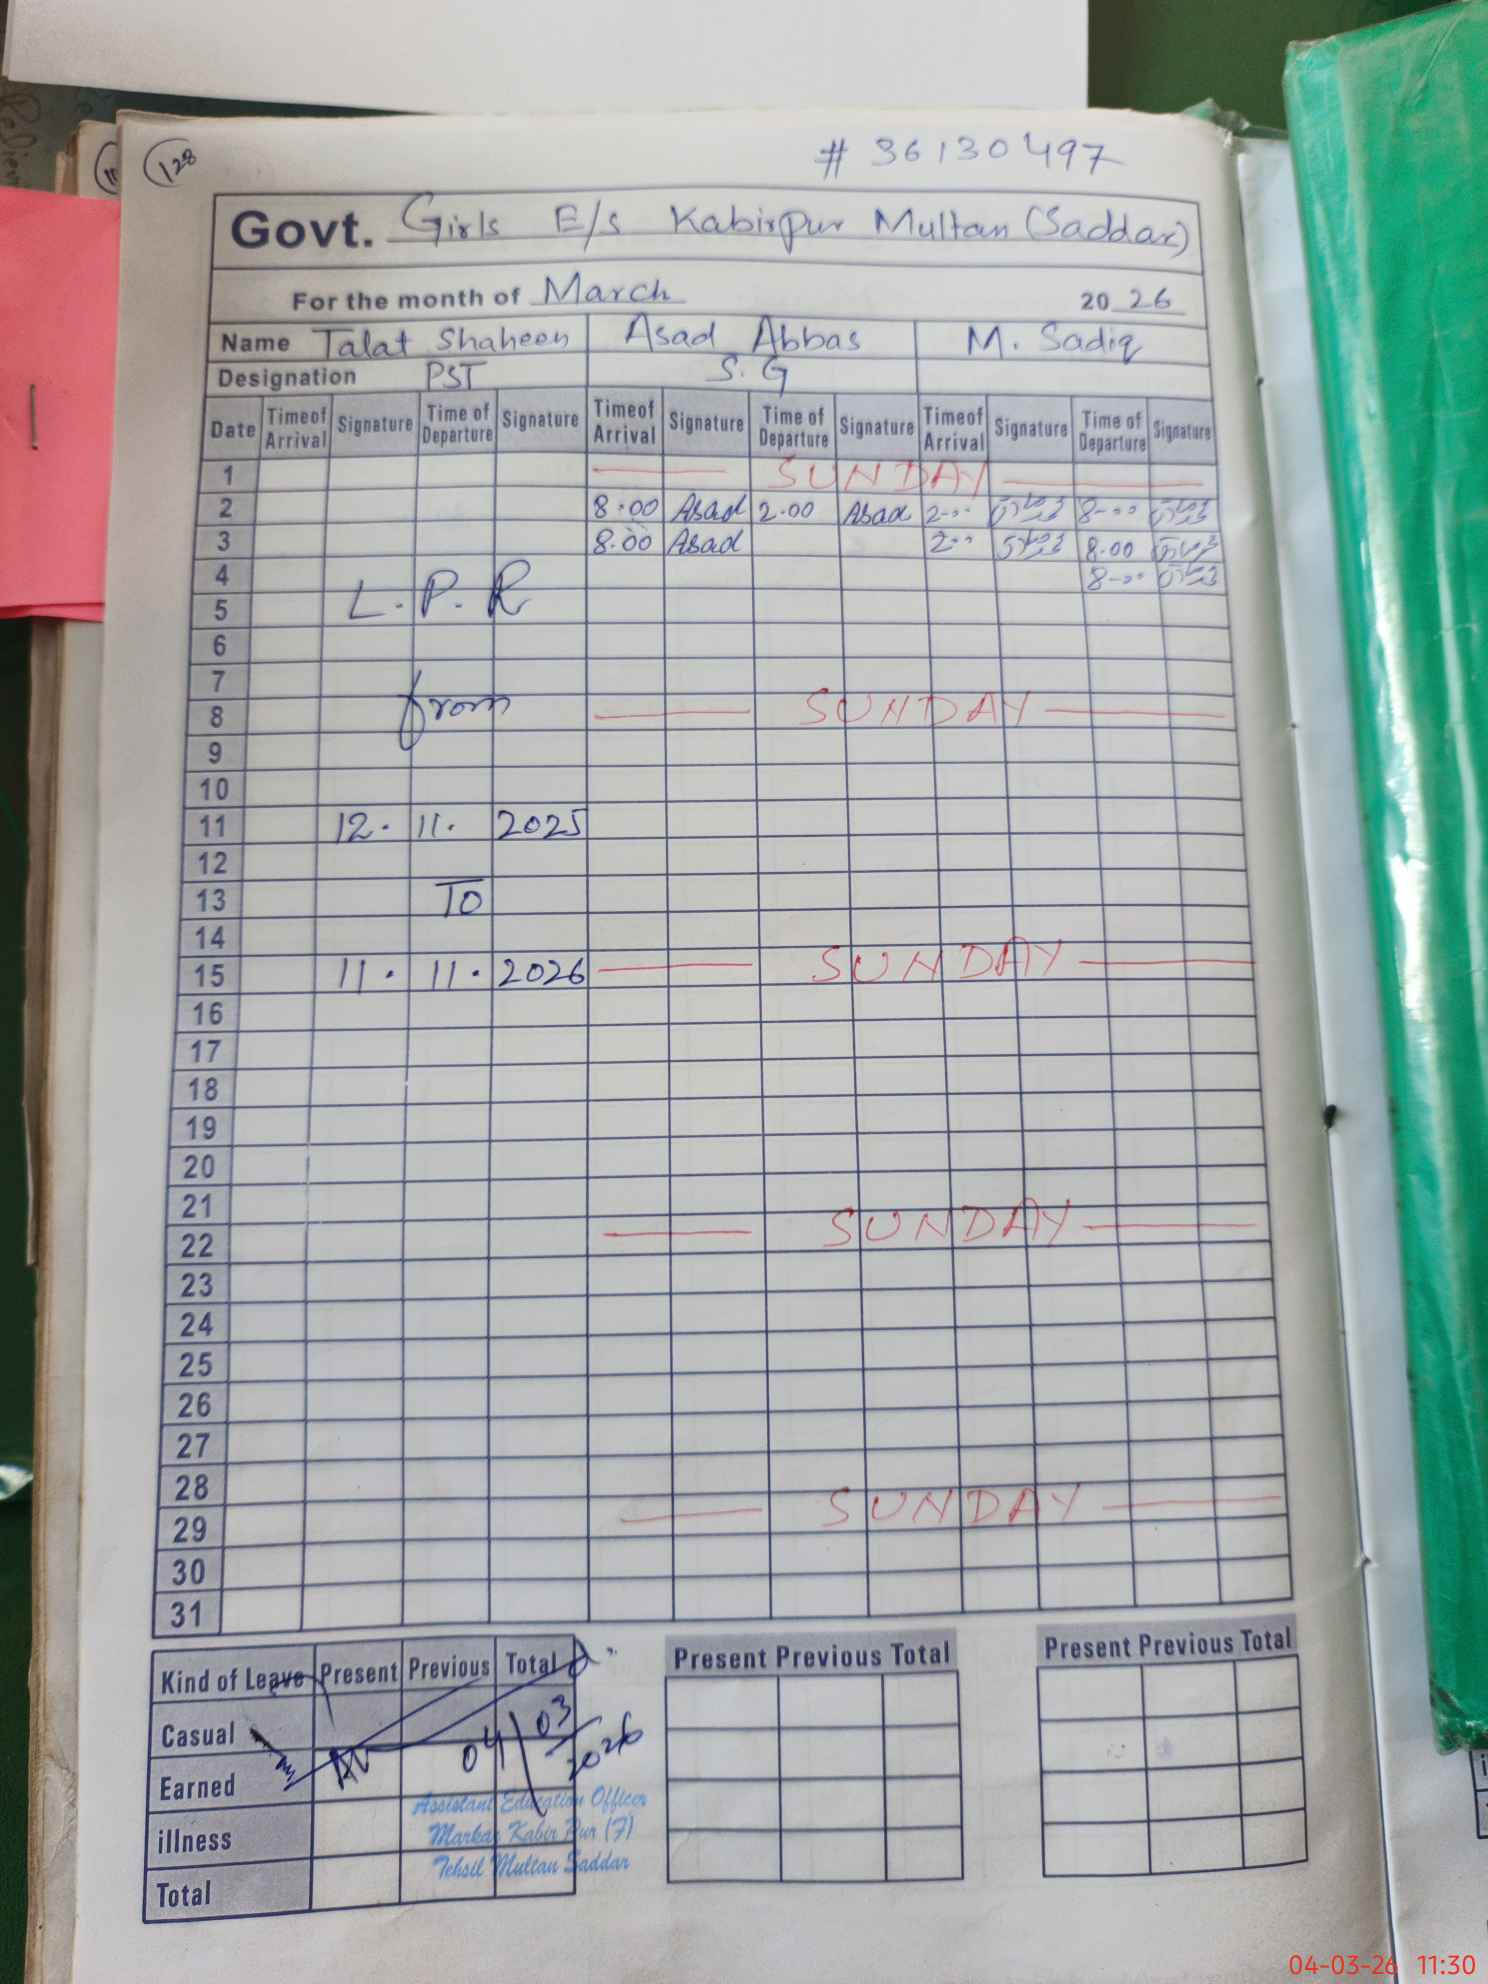 128
# 36130497
Govt. Girls E/S Kabirpur Multan (Saddar)
For the month of March 2026
Name Talat Shaheen Asad Abbas M. Sadiq
Designation PST S.G
Date Timeof Arrival Signature Time of Departure Signature Timeof Arrival Signature Time of Departure Signature Timeof Arrival Signature Time of Departure Signature
1 SUNDAY
2 8.00 Asad 2.00 Asad 2-00 8-00
3 8.00 Asad 2-00 8.00
4 8-00
L.P.R
5
6
7
from
8 SUNDAY
9
10
11 12. 11. 2025
12
13 To
14
15 11. 11. 2026 SUNDAY
16
17
18
19
20
21
22 SUNDAY
23
24
25
26
27
28
29 SUNDAY
30
31
Kind of Leave Present Previous Total Present Previous Total Present Previous Total
Casual
04/03/2026
Earned
Assistant Education Officer
illness
Markaz Kabir Pur (F)
Tehsil Multan Saddar
Total
04-03-26 11:30